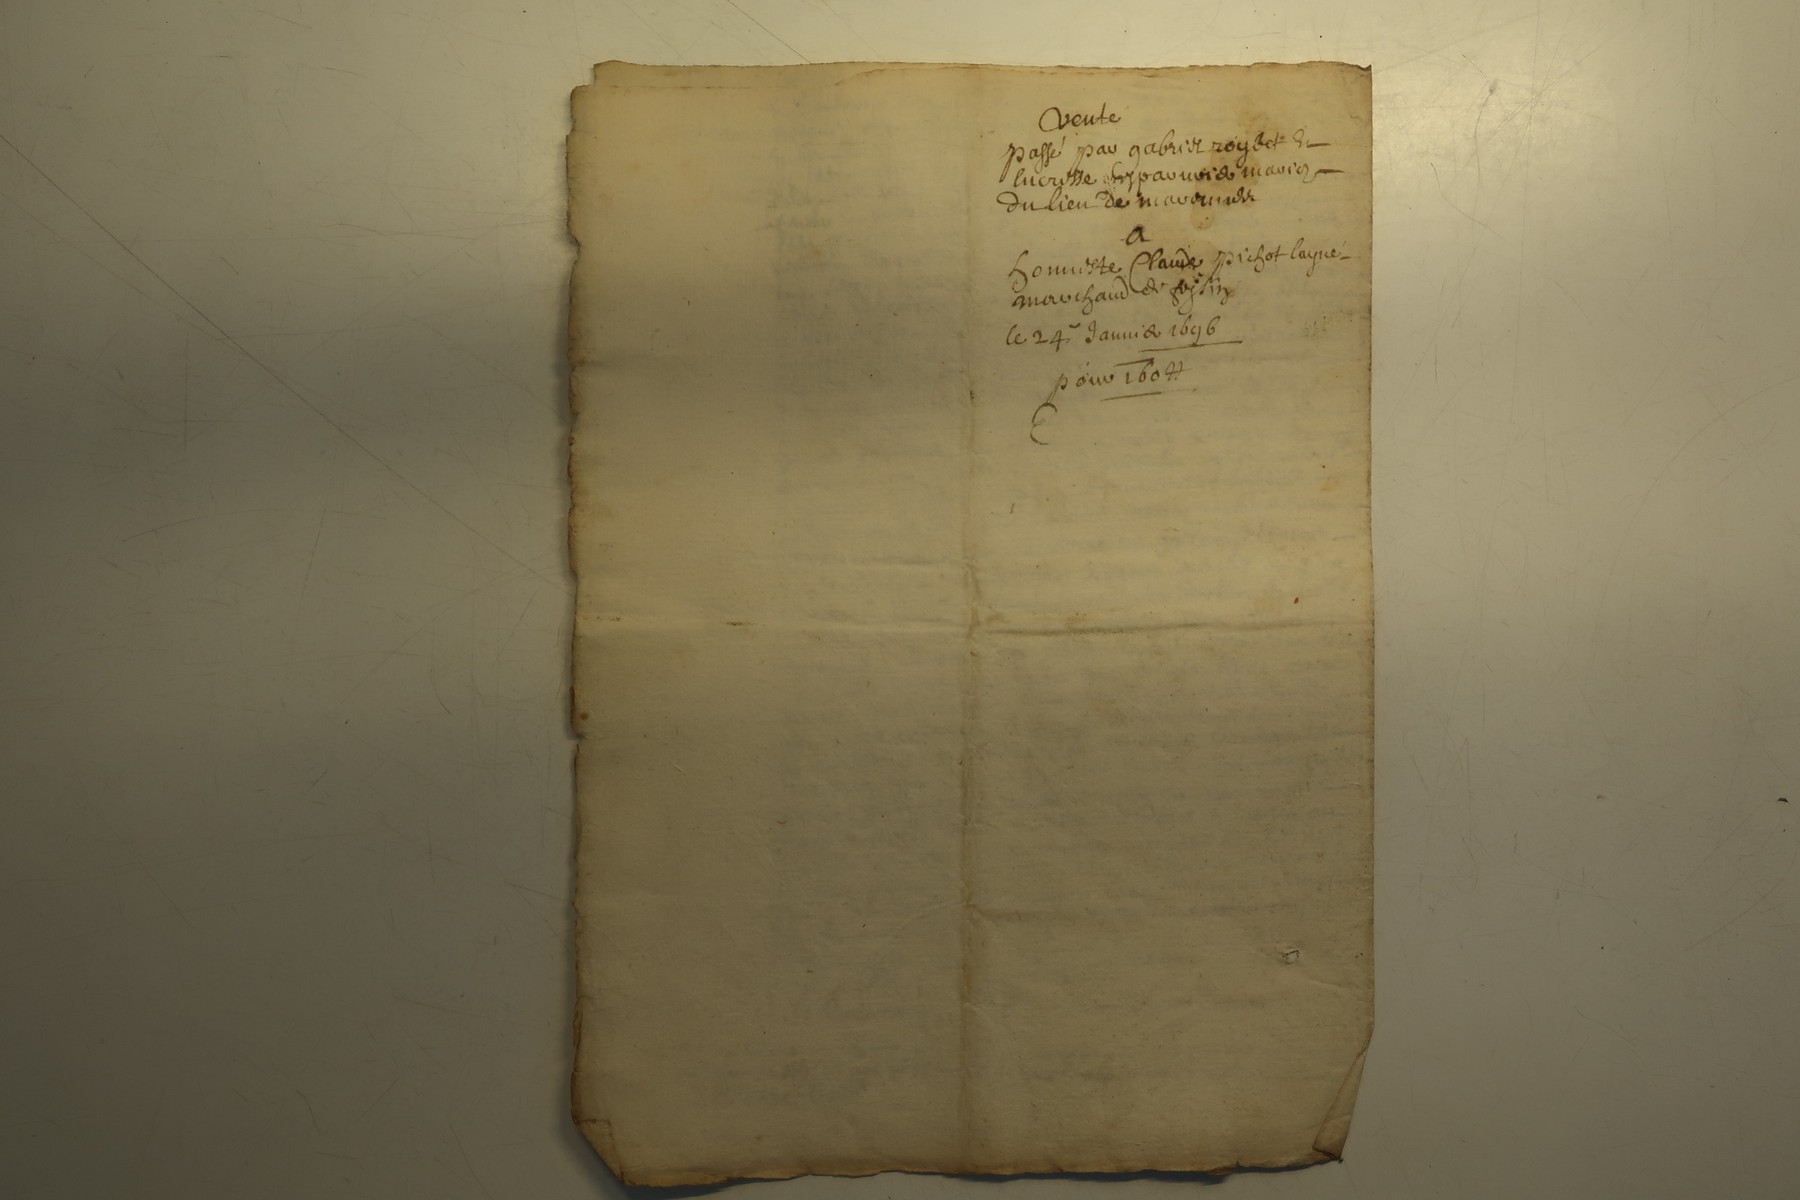 Vente
passé par gabriel roybet et
lucresse mariés
du lieu de
A
honneste Claude pichot layné
marchand de
le 24e Janvier 1696
pour 160 ₶